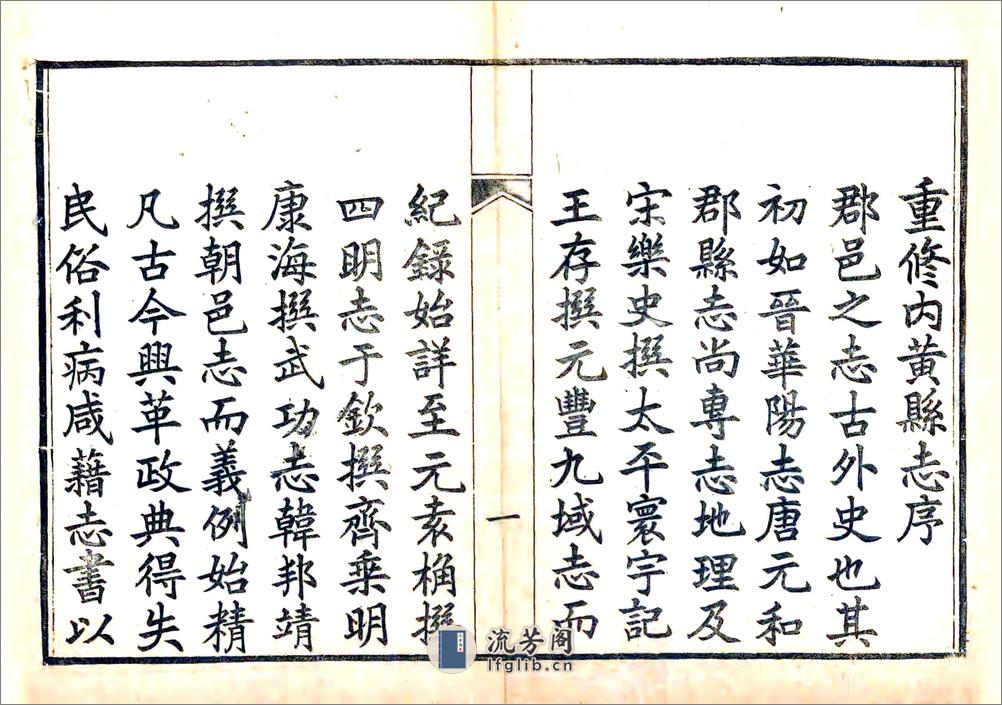 重修内黃縣志序
郡邑之志古外史也其
初如晉華陽志唐元和
郡縣志尚專志地理及
宋樂史撰太平寰宇記
王存撰元豐九域志而
一
紀錄始詳至元袁桷撰
四明志于欽撰齊乘明
康海撰武功志韓邦靖
撰朝邑志而義例始精
凡古今興革政典得失
民俗利病咸藉志書以
流芳阁
lfglib.cn